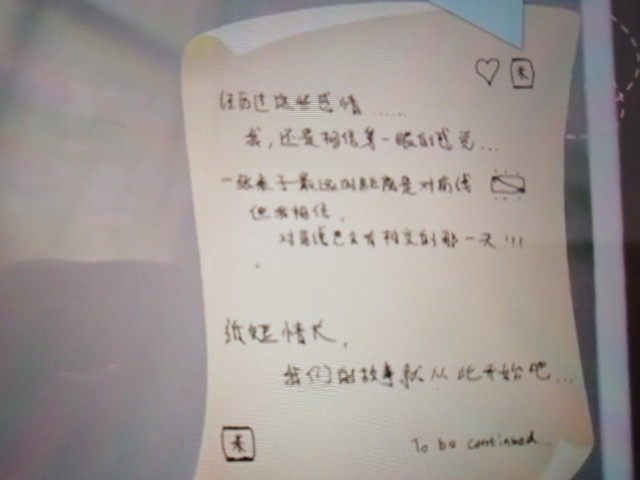 经历过这些感情......
我,还是相信第一眼的感觉...
一张桌子最远的距离是对角线
但我相信,
对角线也会有相交的那一天!!!
纸短情长,
我们的故事就从此开始吧...
To be continued...